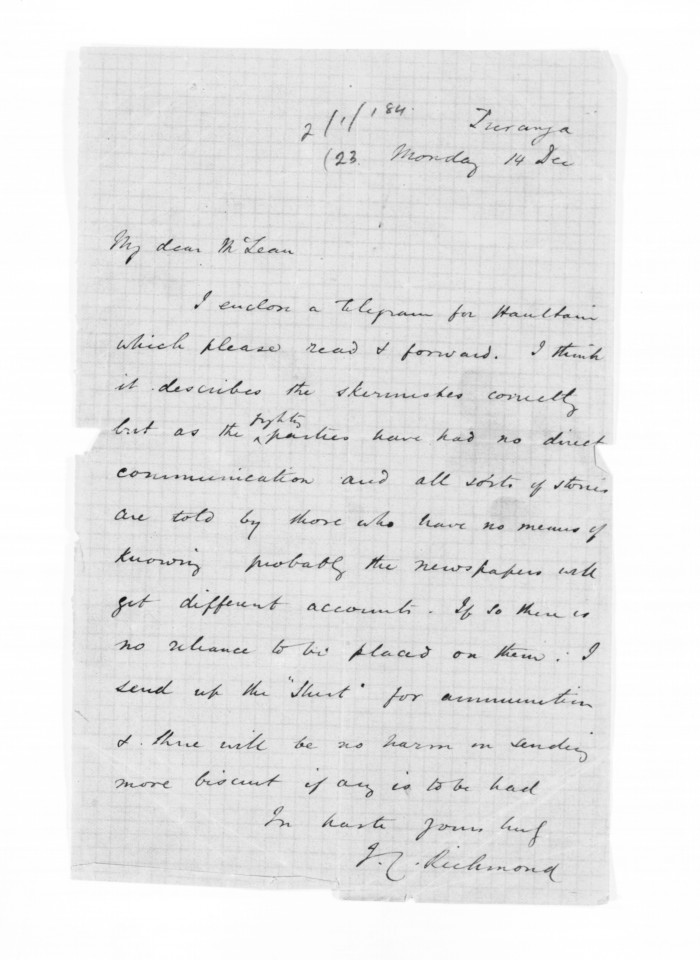 2/1/184. Turanga
(23. Monday 14 Dec
My dear McLean
I enclose a telegram for Haultain
which please read & forward. I think
it describes the skirmishes correctly
but as the fightg parties have had no direct
communication and all sorts of stories
are told by those who have no means of
knowing probably the newspapers will
get different accounts. If so there is
no reliance to be placed on them. I
send up the "Sturt" for ammunition
& there will be no harm in sending
more biscuit if any is to be had
In haste yours truly
J. C. Richmond